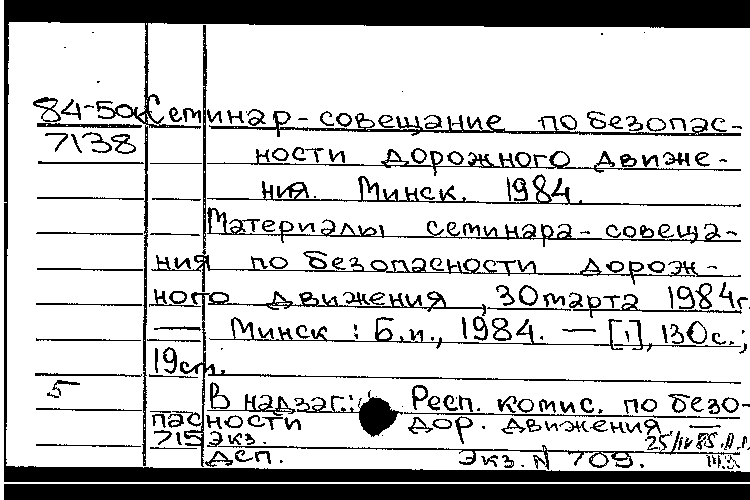 84-50к Семинар-совещание по безопас-
7138 ности дорожного движе-
ния. Минск. 1984.
Материалы семинара-совеща-
ния по безопасности дорож-
ного движения, 30 марта 1984г.
— Минск : Б.и., 1984. — [1], 130с.;
19см.
5 В надзаг.: Респ. комис. по безо-
пасности дор. движения —
715 экз. 25/IV 85
ДСП. Экз. N 709.